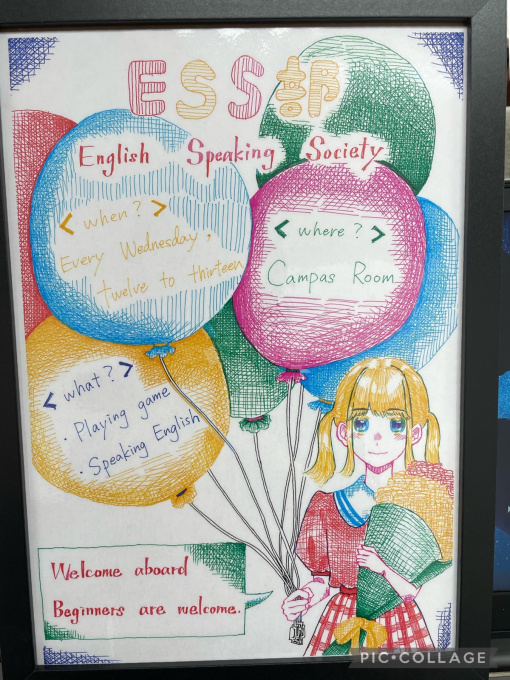 ESS部
English Speaking Society
< when? >
Every Wednesday,
twelve to thirteen
< where? >
Campas Room
< what? >
・Playing game
・Speaking English
Welcome aboard
Beginners are welcome.
PIC•COLLAGE